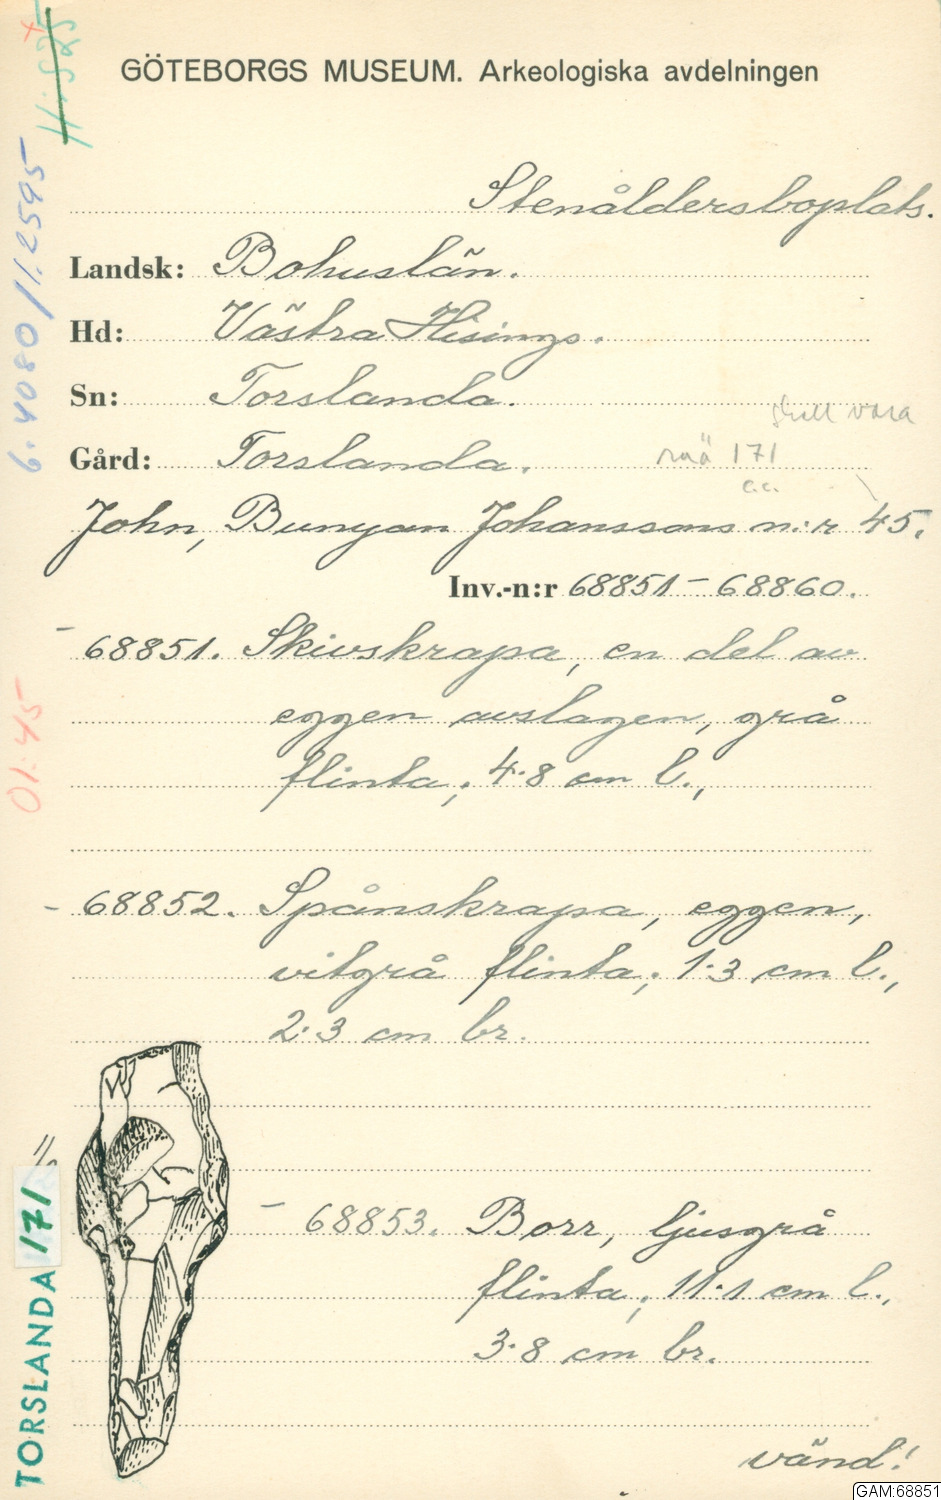 GÖTEBORGS MUSEUM. Arkeologiska avdelningen
Stenåldersboplats.
Landsk: Bohuslän.
Hd: Västra Hisings.
Sn: Torslanda.
skall vara
Gård: Torslanda.
raä 171
c.c.
John, Bunyan Johanssons n:r 45.
Inv.-n:r 68851–68860.
- 68851. Skivskrapa, en del av
eggen avslagen, grå
flinta; 4·8 cm l.,
- 68852. Spånskrapa, eggen,
vitgrå flinta; 1·3 cm l.,
2·3 cm br.
- 68853. Borr, ljusgrå
flinta; 11·1 cm l.,
3·8 cm br.
vänd!
6.4080/1.2595
01:45
TORSLANDA 171
GAM:68851